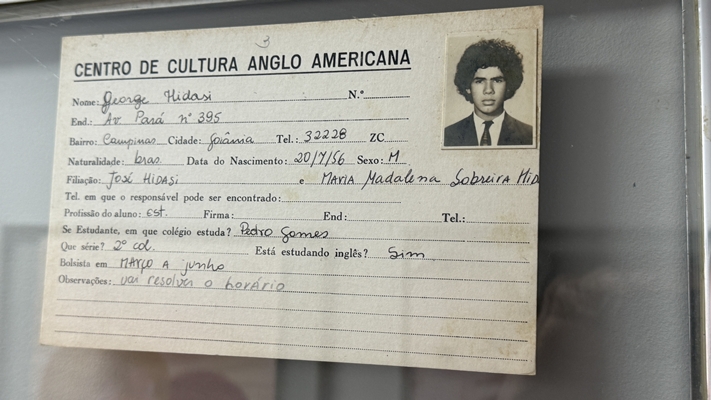 3
CENTRO DE CULTURA ANGLO AMERICANA
Nome: George Hidasi N.º
End.: Av. Pará nº 395
Bairro: Campinas Cidade: Goiânia Tel.: 32228 ZC
Naturalidade: bras. Data do Nascimento: 20/7/56 Sexo: M
Filiação: José HIDASI e MARIA Madalena Sobreira HID
Tel. em que o responsável pode ser encontrado:
Profissão do aluno: Est. Firma: End: Tel.:
Se Estudante, em que colégio estuda? Pedro Gomes
Que série? 2º col. Está estudando inglês? Sim
Bolsista em MARÇO A junho
Observações: vai resolver o horário